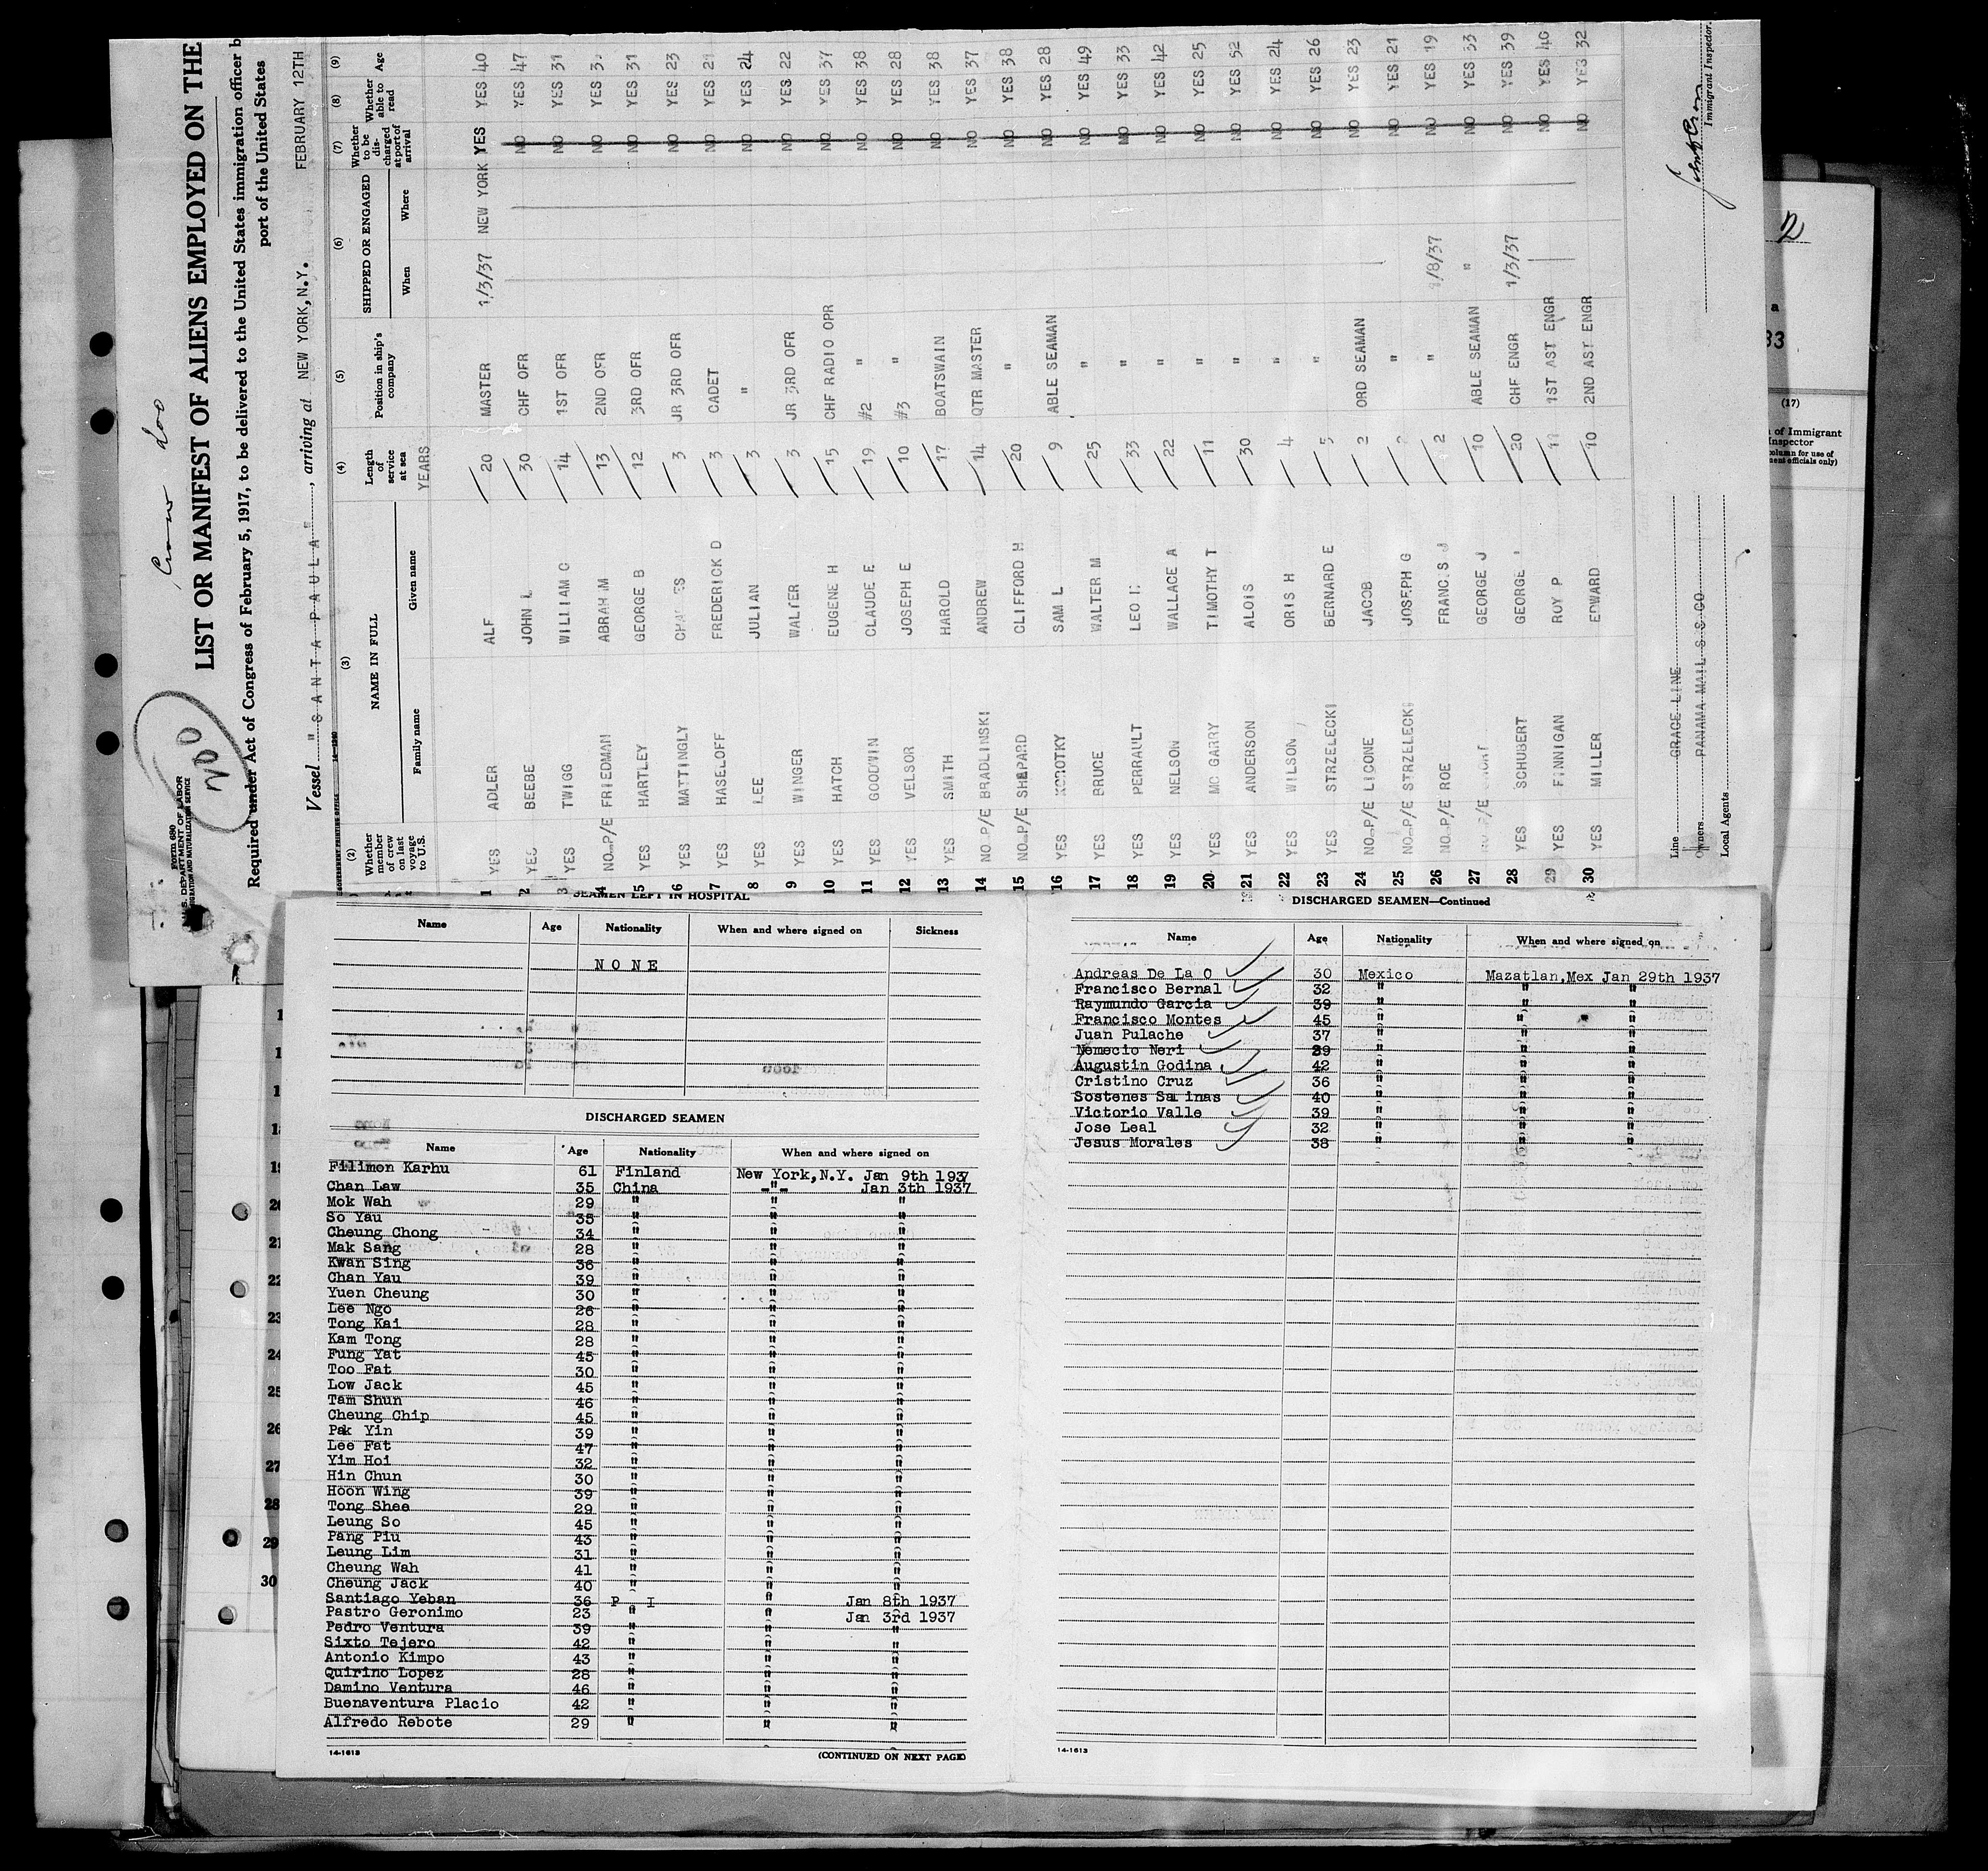 Form 680
U.S. DEPARTMENT OF LABOR
IMMIGRATION AND NATURALIZATION SERVICE
200
Crew
LIST OR MANIFEST OF ALIENS EMPLOYED ON THE
Required under Act of Congress of February 5, 1917, to be delivered to the United States immigration officer b
port of the United States
Vessel "SANTA PAULA", arriving at NEW YORK, N.Y. FEBRUARY 12TH
(2) (3) (4) (5) (6) (7) (8) (9)
Whether member of crew on last voyage to U.S. NAME IN FULL Family name Given name Length of service at sea Position in ship's company SHIPPED OR ENGAGED When Where Whether to be discharged at port of arrival Whether able to read Age
YEARS
1 YES ADLER ALF 20 MASTER 1/3/37 NEW YORK YES YES 40
2 YES BEEBE JOHN L 30 CHF OFR NO YES 47
3 YES TWIGG WILLIAM C 14 1ST OFR NO YES 31
4 NO P/E FRIEDMAN ABRAH M 13 2ND OFR NO YES
5 YES HARTLEY GEORGE B 12 3RD OFR NO YES 31
6 YES MATTINGLY CHARLES 3 JR 3RD OFR NO YES 23
7 YES HASELOFF FREDERICK D 3 CADET NO YES 21
8 YES LEE JULIAN 3 " NO YES 24
9 YES WINGER WALTER 3 JR 3RD OFR NO YES 22
10 YES HATCH EUGENE H 15 CHF RADIO OPR NO YES 37
11 YES GOODWIN CLAUDE E 19 #2 " NO YES 38
12 YES VELSOR JOSEPH E 10 #3 " NO YES 28
13 YES SMITH HAROLD 17 BOATSWAIN NO YES 38
14 NO P/E BRADLINSKI ANDREW 14 QTR MASTER NO YES 37
15 NO P/E SHEPARD CLIFFORD H 20 " NO YES 38
16 YES KOROTKY SAM L 9 ABLE SEAMAN NO YES 28
17 YES BRUCE WALTER M 25 " NO YES 49
18 YES PERRAULT LEO 33 " NO YES 33
19 YES NELSON WALLACE A 22 " NO YES 42
20 YES MC GARRY TIMOTHY T 11 " NO YES 25
21 YES ANDERSON ALOIS 30 " NO YES 52
22 YES WILSON ORIS H 4 " NO YES 24
23 YES STRZELECKI BERNARD E 5 " NO YES 26
24 NO P/E LICONE JACOB 2 ORD SEAMAN NO YES 23
25 NO P/E STRZELECKI JOSEPH G 2 " NO YES 21
26 NO P/E ROE FRANCIS J 2 " 1/8/37 NO YES 19
27 NO P/E GEORGE J 10 ABLE SEAMAN " NO YES 33
28 YES SCHUBERT GEORGE 20 CHF ENGR 1/3/37 NO YES 39
29 YES FINNIGAN ROY P 17 1ST AST ENGR NO YES 40
30 YES MILLER EDWARD 10 2ND AST ENGR NO YES 32
Line GRACE LINE
Owners PANAMA MAIL S S CO
Local Agents
Immigrant Inspector.
2
a
33
(17)
n of Immigrant
Inspector
column for use of
ment officials only)
SEAMEN LEFT IN HOSPITAL
Name Age Nationality When and where signed on Sickness
NONE
DISCHARGED SEAMEN
Name Age Nationality When and where signed on
Filimon Karhu 61 Finland New York,N.Y. Jan 9th 1937
Chan Law 35 China -"- Jan 3th 1937
Mok Wah 29 " " "
So Yau 35 " " "
Cheung Chong 34 " " "
Mak Sang 28 " " "
Kwan Sing 36 " " "
Chan Yau 39 " " "
Yuen Cheung 30 " " "
Lee Ngo 26 " " "
Tong Kai 28 " " "
Kam Tong 28 " " "
Fung Yat 45 " " "
Too Fat 30 " " "
Low Jack 45 " " "
Tam Shun 46 " " "
Cheung Chip 45 " " "
Pak Yin 39 " " "
Lee Fat 47 " " "
Yim Hoi 32 " " "
Hin Chun 30 " " "
Hoon Wing 39 " " "
Tong Shee 29 " " "
Leung So 45 " " "
Pang Piu 43 " " "
Leung Lim 31 " " "
Cheung Wah 41 " " "
Cheung Jack 40 " " "
Santiago Yeban 36 P I " Jan 8th 1937
Pastro Geronimo 23 " " Jan 3rd 1937
Pedro Ventura 39 " " "
Sixto Tejero 42 " " "
Antonio Kimpo 43 " " "
Quirino Lopez 28 " " "
Damino Ventura 46 " " "
Buenaventura Placio 42 " " "
Alfredo Rebote 29 " " "
14-1613 (CONTINUED ON NEXT PAGE)
DISCHARGED SEAMEN—Continued
Name Age Nationality When and where signed on
Andreas De La O 30 Mexico Mazatlan,Mex Jan 29th 1937
Francisco Bernal 32 " " "
Raymundo Garcia 39 " " "
Francisco Montes 45 " " "
Juan Pulache 37 " " "
Nemecio Neri 39 " " "
Augustin Godina 42 " " "
Cristino Cruz 36 " " "
Sostenes Salinas 40 " " "
Victorio Valle 39 " " "
Jose Leal 32 " " "
Jesus Morales 38 " " "
14-1613
20
21
22
23
24
25
26
27
28
29
30